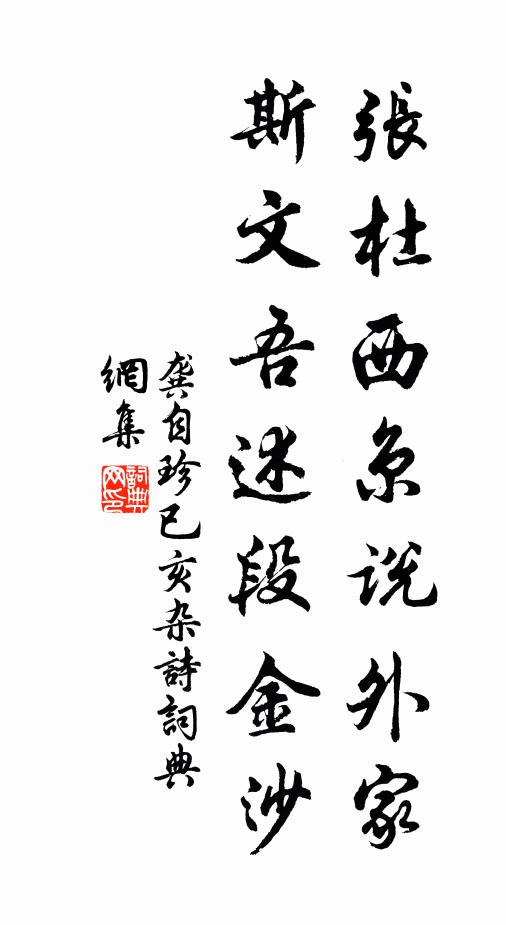 張杜西京説外家
斯文吾述段金沙
龚自珍已亥杂詩詞典
網集
詞典
网印